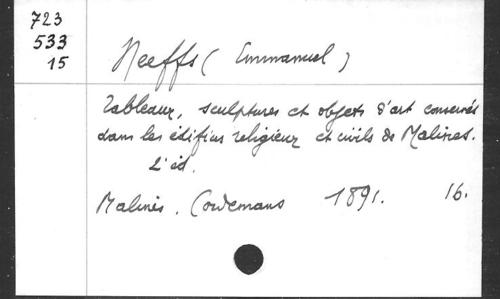 723
533
15
Neeffs ( Emmanuel )
Tableaux, sculptures et objets d'art conservés
dans les édifices religieux et civils de Malines.
2e éd.
Malines. Cordemans 1891. 16.